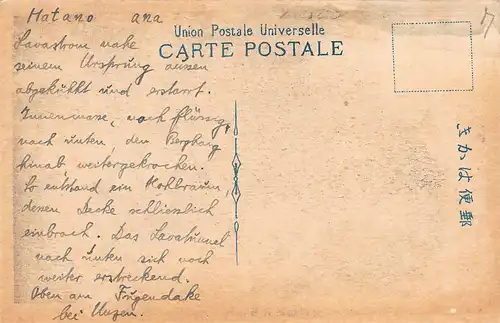 Hatano ana
Union Postale Universelle
CARTE POSTALE
Lavastrom nahe
seinem Ursprung aussen
abgekühlt und erstarrt.
Innenmasse, noch flüssig,
nach unten, den Berghang
hinab weitergekrochen.
So entstand ein Hohlraum,
dessen Decke schliesslich
einbrach. Das Lavatunnel
nach unten sich noch
weiter erstreckend.
Oben am Fugendake
bei Unzen.
きかは便郵